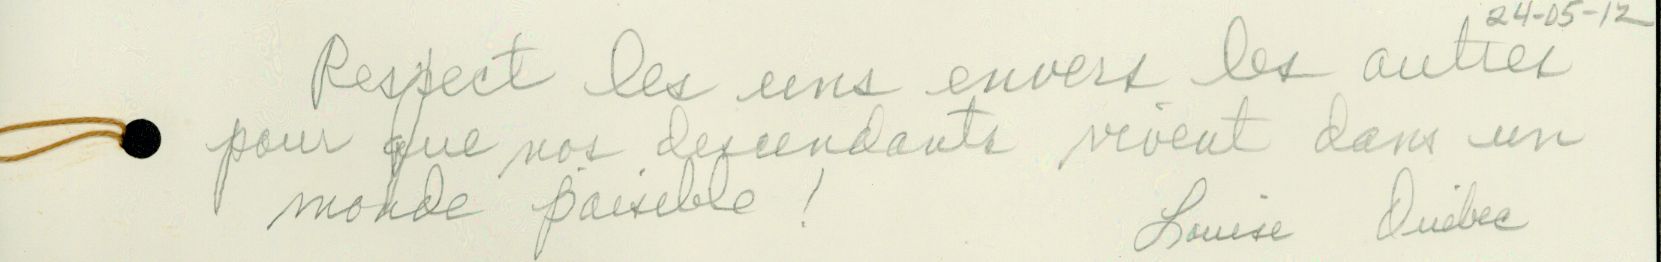 24-05-12
Respect les uns envers les autres
pour que nos descendants vivent dans un
monde paisible !
Louise Québec